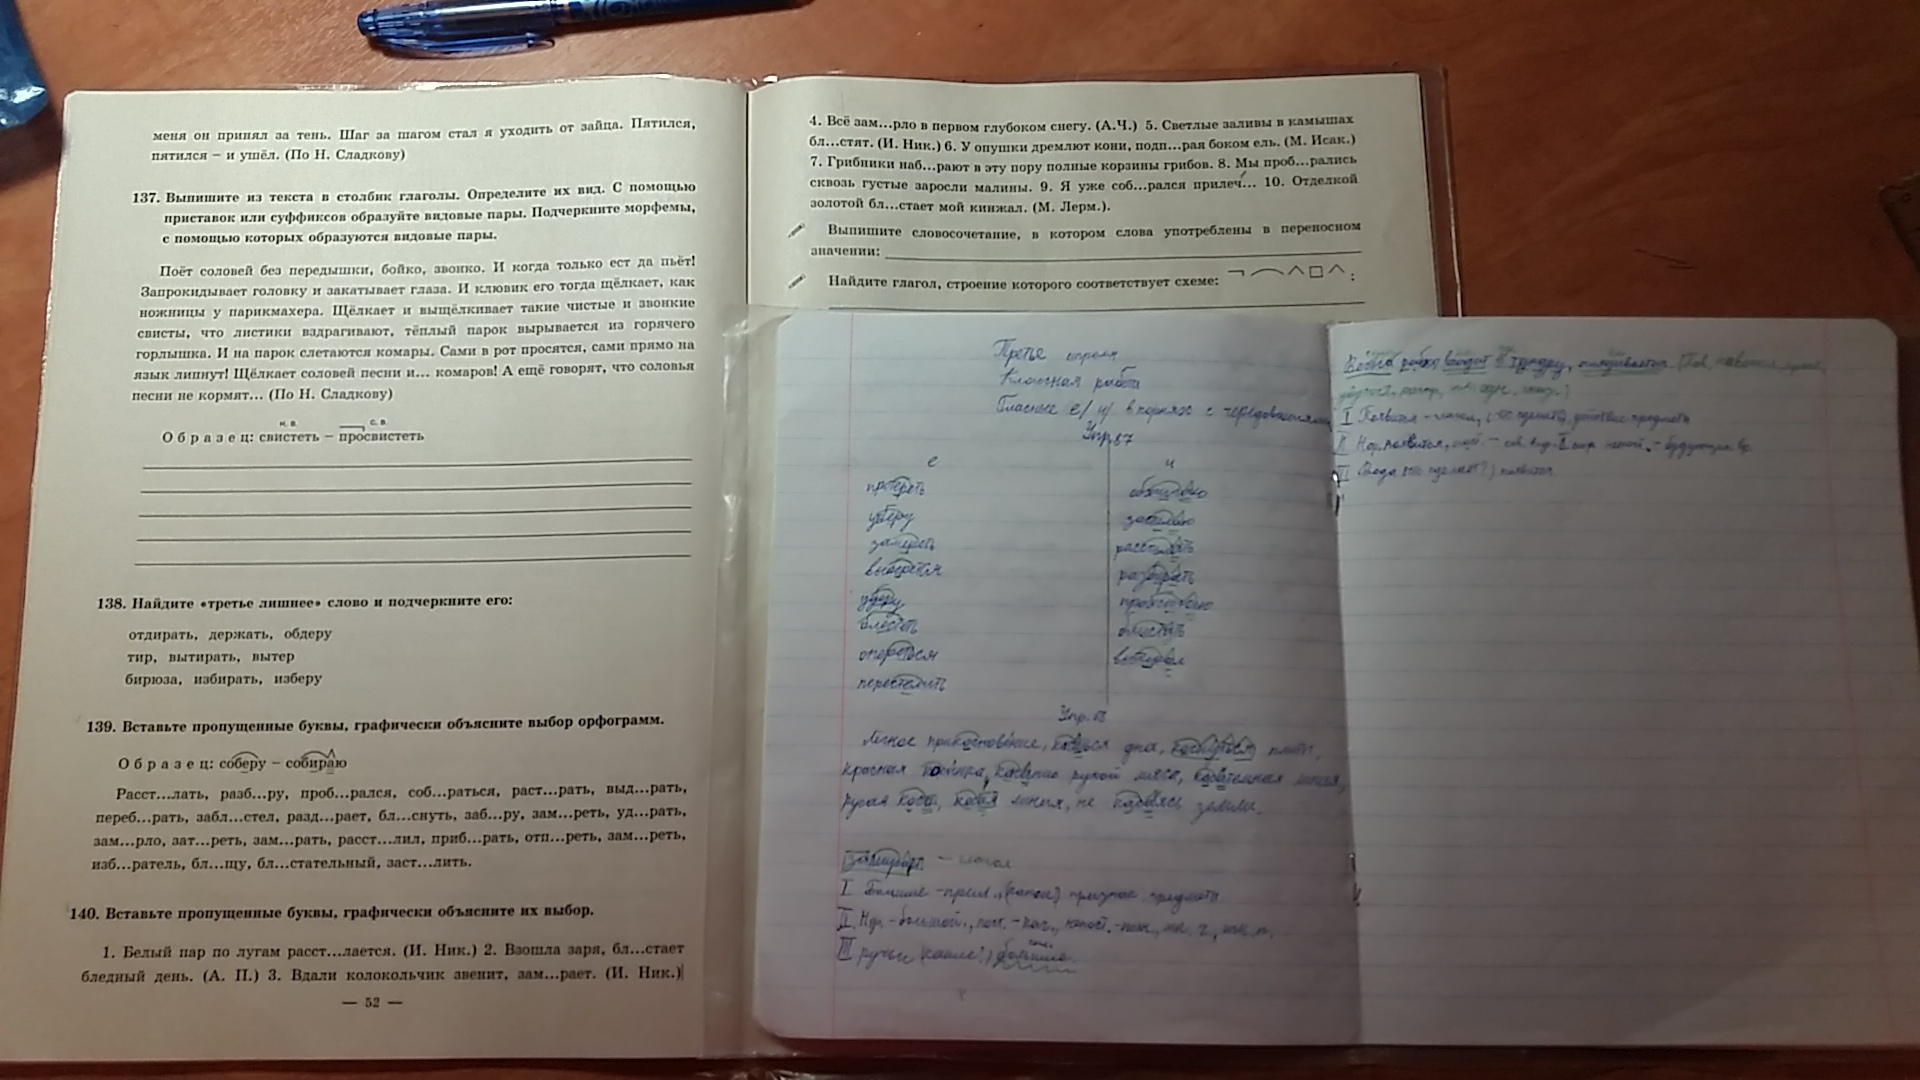 меня он принял за тень. Шаг за шагом стал я уходить от зайца. Пятился,
пятился – и ушёл. (По Н. Сладкову)
137. Выпишите из текста в столбик глаголы. Определите их вид. С помощью
приставок или суффиксов образуйте видовые пары. Подчеркните морфемы,
с помощью которых образуются видовые пары.
Поёт соловей без передышки, бойко, звонко. И когда только ест да пьёт!
Запрокидывает головку и закатывает глаза. И клювик его тогда щёлкает, как
ножницы у парикмахера. Щёлкает и выщёлкивает такие чистые и звонкие
свисты, что листики вздрагивают, тёплый парок вырывается из горячего
горлышка. И на парок слетаются комары. Сами в рот просятся, сами прямо на
язык липнут! Щёлкает соловей песни и... комаров! А ещё говорят, что соловья
песни не кормят... (По Н. Сладкову)
н. в. с. в.
Образец: свистеть – просвистеть
138. Найдите «третье лишнее» слово и подчеркните его:
отдирать, держать, обдеру
тир, вытирать, вытер
бирюза, избирать, изберу
139. Вставьте пропущенные буквы, графически объясните выбор орфограмм.
Образец: соберу – собираю
Расст...лать, разб...ру, проб...рался, соб...раться, раст...рать, выд...рать,
переб...рать, забл...стел, разд...рает, бл...снуть, заб...ру, зам...реть, уд...рать,
зам...рло, зат...реть, зам...рать, расст...лил, приб...рать, отп...реть, зам...реть,
изб...ратель, бл...щу, бл...стательный, заст...лить.
140. Вставьте пропущенные буквы, графически объясните их выбор.
1. Белый пар по лугам расст...лается. (И. Ник.) 2. Взошла заря, бл...стает
бледный день. (А. П.) 3. Вдали колокольчик звенит, зам...рает. (И. Ник.)
— 52 —
4. Всё зам...рло в первом глубоком снегу. (А.Ч.) 5. Светлые заливы в камышах
бл...стят. (И. Ник.) 6. У опушки дремлют кони, подп...рая боком ель. (М. Исак.)
7. Грибники наб...рают в эту пору полные корзины грибов. 8. Мы проб...рались
сквозь густые заросли малины. 9. Я уже соб...рался прилеч... 10. Отделкой
золотой бл...стает мой кинжал. (М. Лерм.).
Выпишите словосочетание, в котором слова употреблены в переносном
значении:
Найдите глагол, строение которого соответствует схеме:
Третье апреля
Классная работа
Гласные е/и в корнях с чередованием
Упр.87
е и
протереть
уберу застилаю
замереть расстилать
выберет разбирать
блестеть блистать
опереться
перестелить
Легкое прикосновение, касаться дна, коснуться плиты,
красная косынка, касание рукой мяса, касательная линия,
русая коса, косая линия, не касаясь земли.
– глагол
I Большие – прил., (какие?) признак предмета
II Н.ф. – большой, мн. ч.,
III ручьи (какие?) большие.